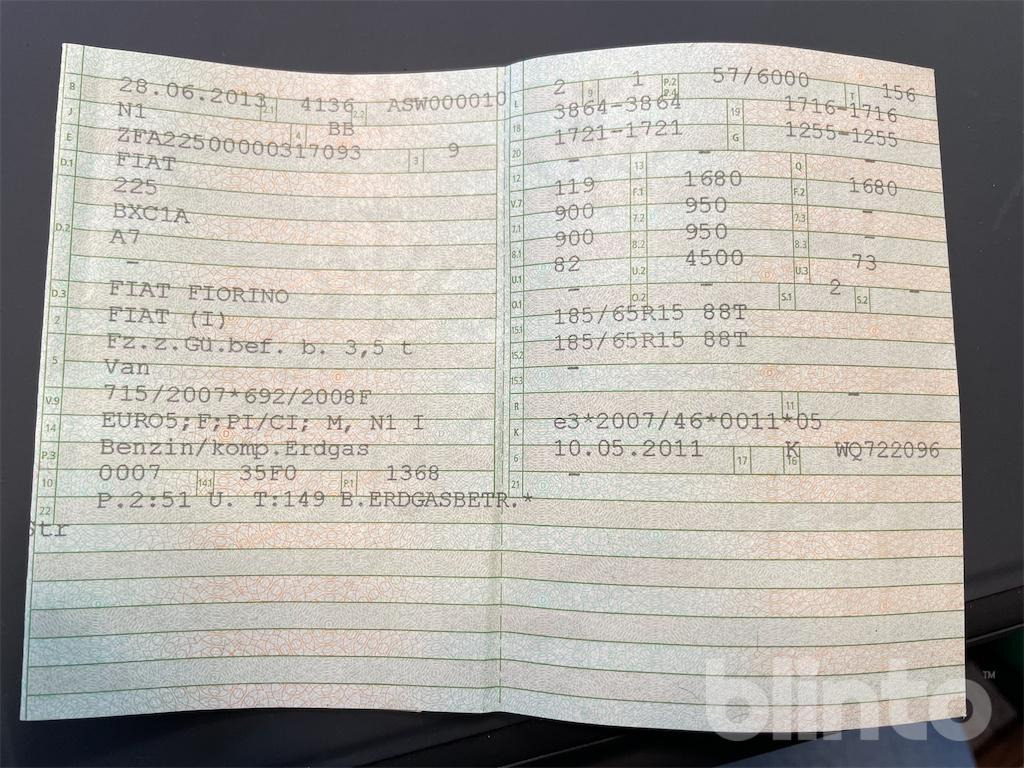 B 28.06.2013 2.1 4136 2.2 ASW000010
J N1 4 BB
E ZFA22500000317093 3 9
D.1 FIAT
225
D.2 BXC1A
A7
–
D.3 FIAT FIORINO
2 FIAT (I)
5 Fz.z.Gü.bef. b. 3,5 t
Van
V.9 715/2007*692/2008F
14 EURO5;F;PI/CI; M, N1 I
P.3 Benzin/komp.Erdgas
10 0007 14.1 35F0 P.1 1368
22 P.2:51 U. T:149 B.ERDGASBETR.*
Str
L 2 9 1 P.2 P.4 57/6000 T 156
18 3864-3864 19 1716-1716
20 1721-1721 G 1255-1255
12 – 13 – Q –
V.7 119 F.1 1680 F.2 1680
7.1 900 7.2 950 7.3 –
8.1 900 8.2 950 8.3 –
U.1 82 U.2 4500 U.3 73
O.1 – O.2 – S.1 2 S.2 –
15.1 185/65R15 88T
15.2 185/65R15 88T
15.3 –
R 11 –
K e3*2007/46*0011*05
6 10.05.2011 17 K 16 WQ722096
21 –
blinto™